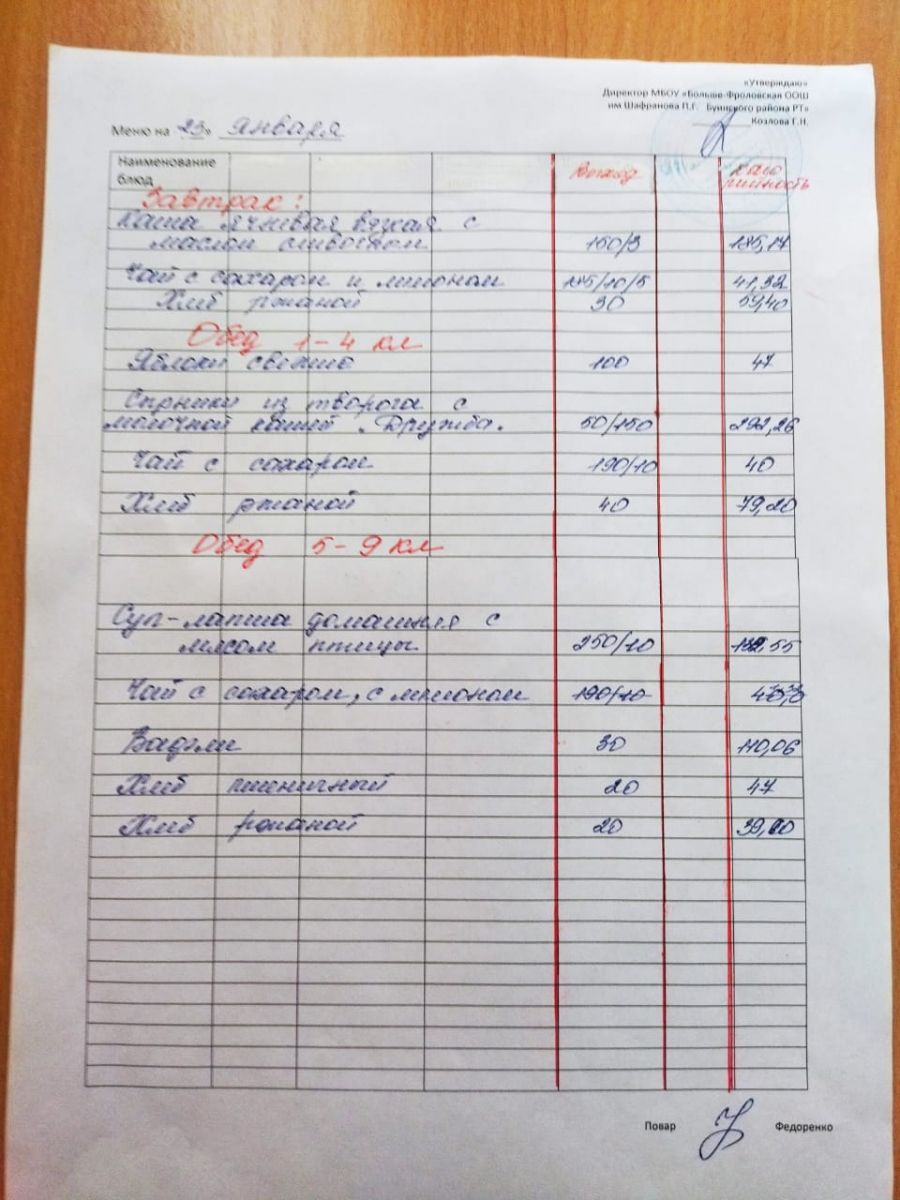 «Утверждаю»
Директор МБОУ «Больше-Фроловская ООШ
им Шафранова П.Г. Буинского района РТ»
Козлова Г.Н.
Меню на «23» января
Наименование блюд Выход Калорийность
Завтрак:
Каша ячневая вязкая с
маслом сливочным 150/3 185,17
Чай с сахаром и лимоном 185/10/5 41,32
Хлеб ржаной 30 59,40
Обед 1-4 кл
Яблоки свежие 100 47
Сырники из творога с
молочной кашей "Дружба" 50/150 292,26
Чай с сахаром 190/10 40
Хлеб ржаной 40 79,20
Обед 5-9 кл
Суп-лапша домашняя с
мясом птицы 250/10
Чай с сахаром, с лимоном 190/10
Вафли 30 110,06
Хлеб пшеничный 20 47
Хлеб ржаной 20
Повар Федоренко